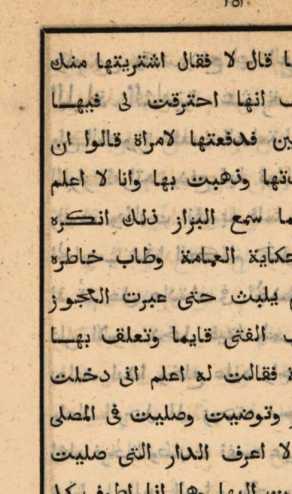 ١٥١
قال لا فقال اشتريتها منك
انها احترقت لى فيها
فدفعتها لامراة قالوا ان
وذهبت بها وانا لا اعلم
سمع البزاز ذلك انكره
حكاية العمامة وطاب خاطره
يلبث حتى عبرت العجوز
الفتى قايما وتعلق بها
فقالت له اعلم انى دخلت
وتوضيت وصليت فى المصلى
لا اعرف الدار التى صليت